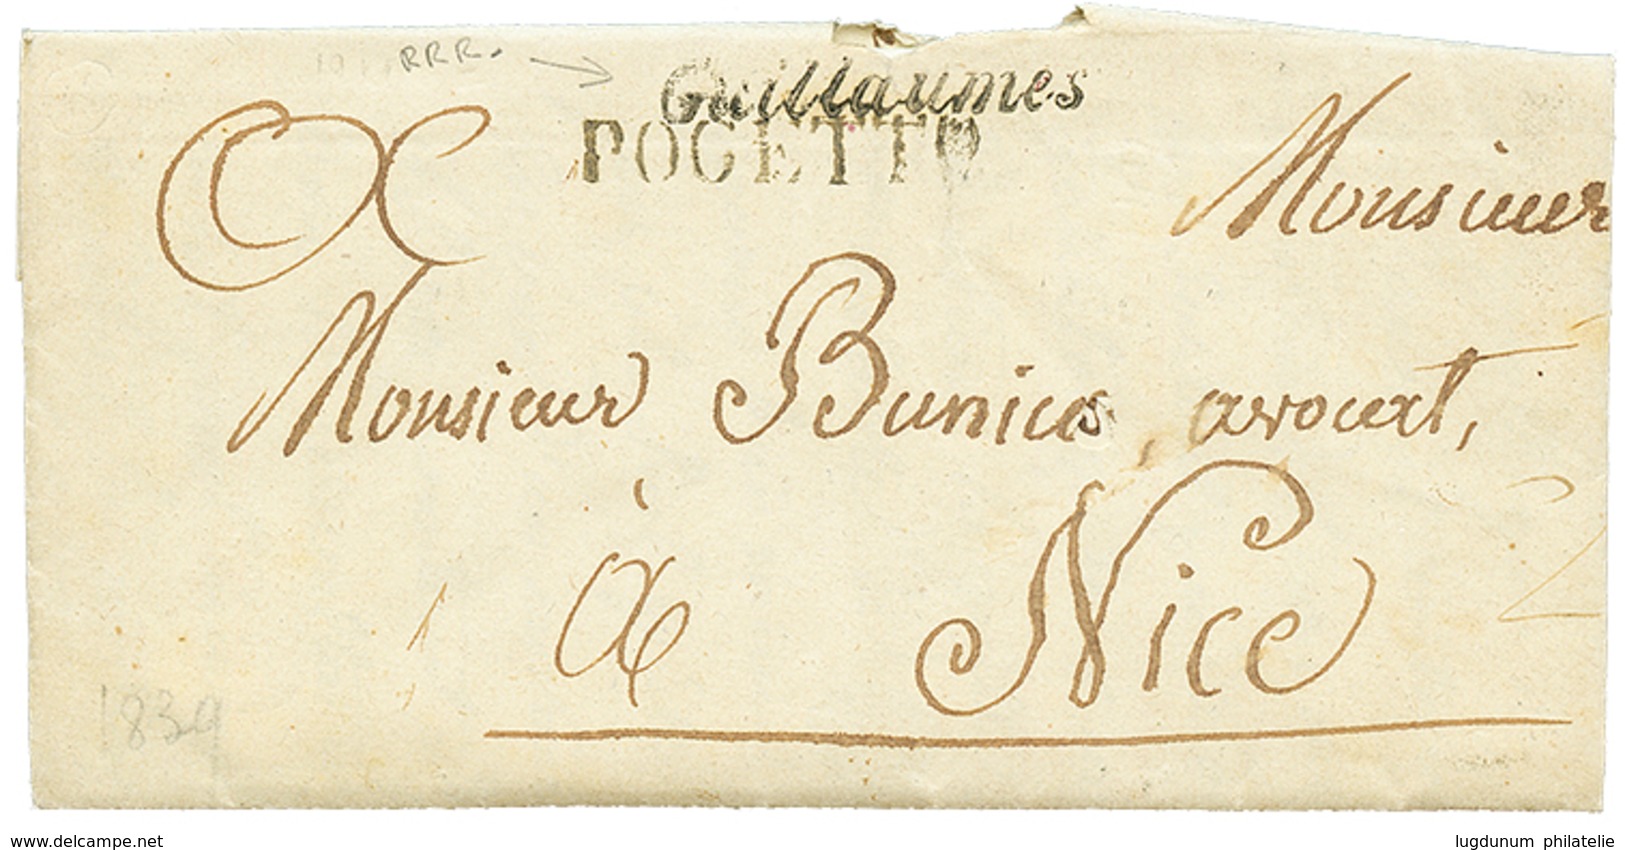 RRR.
Guillaumes
POGETTO
Monsieur
Monsieur Bunico, avocat,
à
Nice
1839
www.delcampe.net
lugdunum philatelie